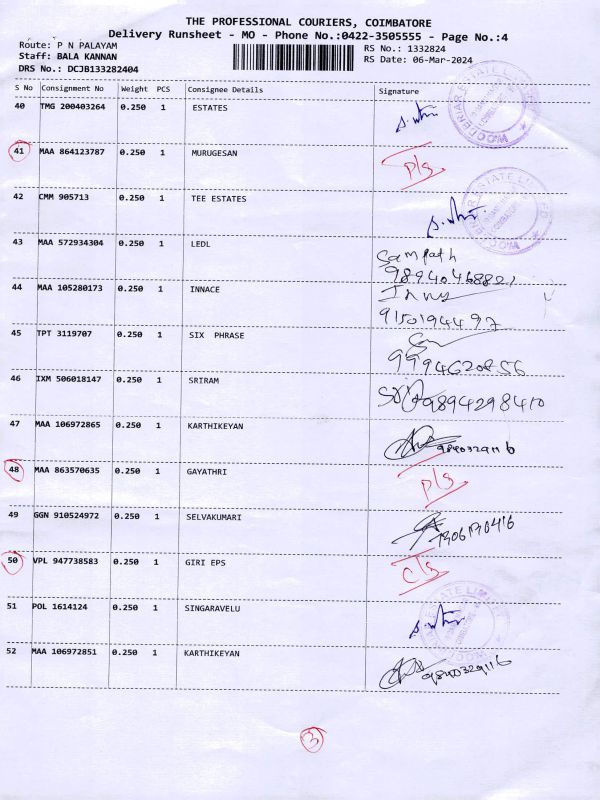 THE PROFESSIONAL COURIERS, COIMBATORE
Delivery Runsheet - MO - Phone No.:0422-3505555 - Page No.:4
Route: P N PALAYAM RS No.: 1332824
Staff: BALA KANNAN RS Date: 06-Mar-2024
DRS No.: DCJB133282404
S No Consignment No Weight PCS Consignee Details Signature
40 TMG 200403264 0.250 1 ESTATES
41 MAA 864123787 0.250 1 MURUGESAN P/s
42 CMM 905713 0.250 1 TEE ESTATES
43 MAA 572934304 0.250 1 LEDL Sampath
44 MAA 105280173 0.250 1 INNACE
9150194497
45 TPT 3119707 0.250 1 SIX PHRASE
9994620856
46 IXM 506018147 0.250 1 SRIRAM 9894298410
47 MAA 106972865 0.250 1 KARTHIKEYAN 9840329116
48 MAA 863570635 0.250 1 GAYATHRI P/s
49 GGN 910524972 0.250 1 SELVAKUMARI
50 VPL 947738583 0.250 1 GIRI EPS C/s
51 POL 1614124 0.250 1 SINGARAVELU
52 MAA 106972851 0.250 1 KARTHIKEYAN 9840329116
3